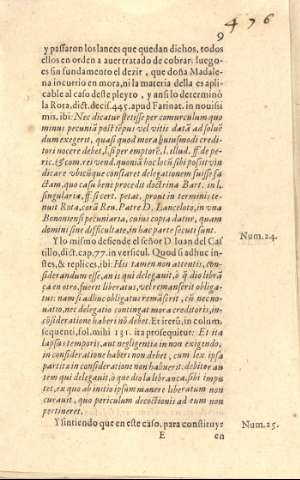 476
9
y passaron los lances que quedan dichos, todos
ellos en orden a auer tratado de cobrar: luego
es sin fundamento el dezir, que doña Madale-
na incurrio en mora, ni la materia della es apli-
cable al caso deste pleyto, y ansi lo determinò
la Rota, dict. decis. 445. apud Farinat. in nouissi
mis, ibi: Nec dicatur stetisse per
minus pecuniã post tẽpus vel vitis datã ad soluẽ
dum exegerit, quasi quod mora huiusmodi credi
tori nocere debet, l. si per emptorẽ, l. illud. ff. de pe-
ric. & com. rei vend. quoniã hoc locũ sibi possit vin
dicare vbicũque constaret delegationem fuisse fa
ctam, quo casu bene procedit doctrina Bart. in l.
singularia, ff. si cert. petat. pront in terminis te-
nuit Rota, corã Reu. Patre D. Lanceloto, in vna
Bononiensi pecuniaria, cuius copia datur, quam
domini sine difficultate, in hac parte secuti sunt.
Y lo mismo defiende el señor D. Iuan del Cas
tillo, dict. cap. 77. in versicul. Quod si adhuc in-
stes, & replices, ibi: His tamen non attentis, con-
siderandum esse, an is qui delegauit, ò q̃ dio librã
ça en otro, fuerit liberatus, vel remanserit obliga-
tus: nam si adhuc obligatus remãserit, cũ nec no-
uatio, nec delegatio contingat mora creditoris, in
cõsideratione haberi nõ debet. Et iterũ, in colum.
sequenti, fol. mihi 151. ita prosequitur: Et ita
lapsus temporis, aut negligentia in non exigendo,
in consideratione haberi non debet, cum lex ipsa
partita in consideratione non habuerit: debitor au
tem qui delegauit, ò que dio la librança, sibi impu
tet, ex quo ab initio ipsum manere liberatum non
curauit, quo periculum decoctionis ad eum non
pertineret.
Y sintiendo que en este caso, para constituyr
E
en
Num. 24.
Num. 25.